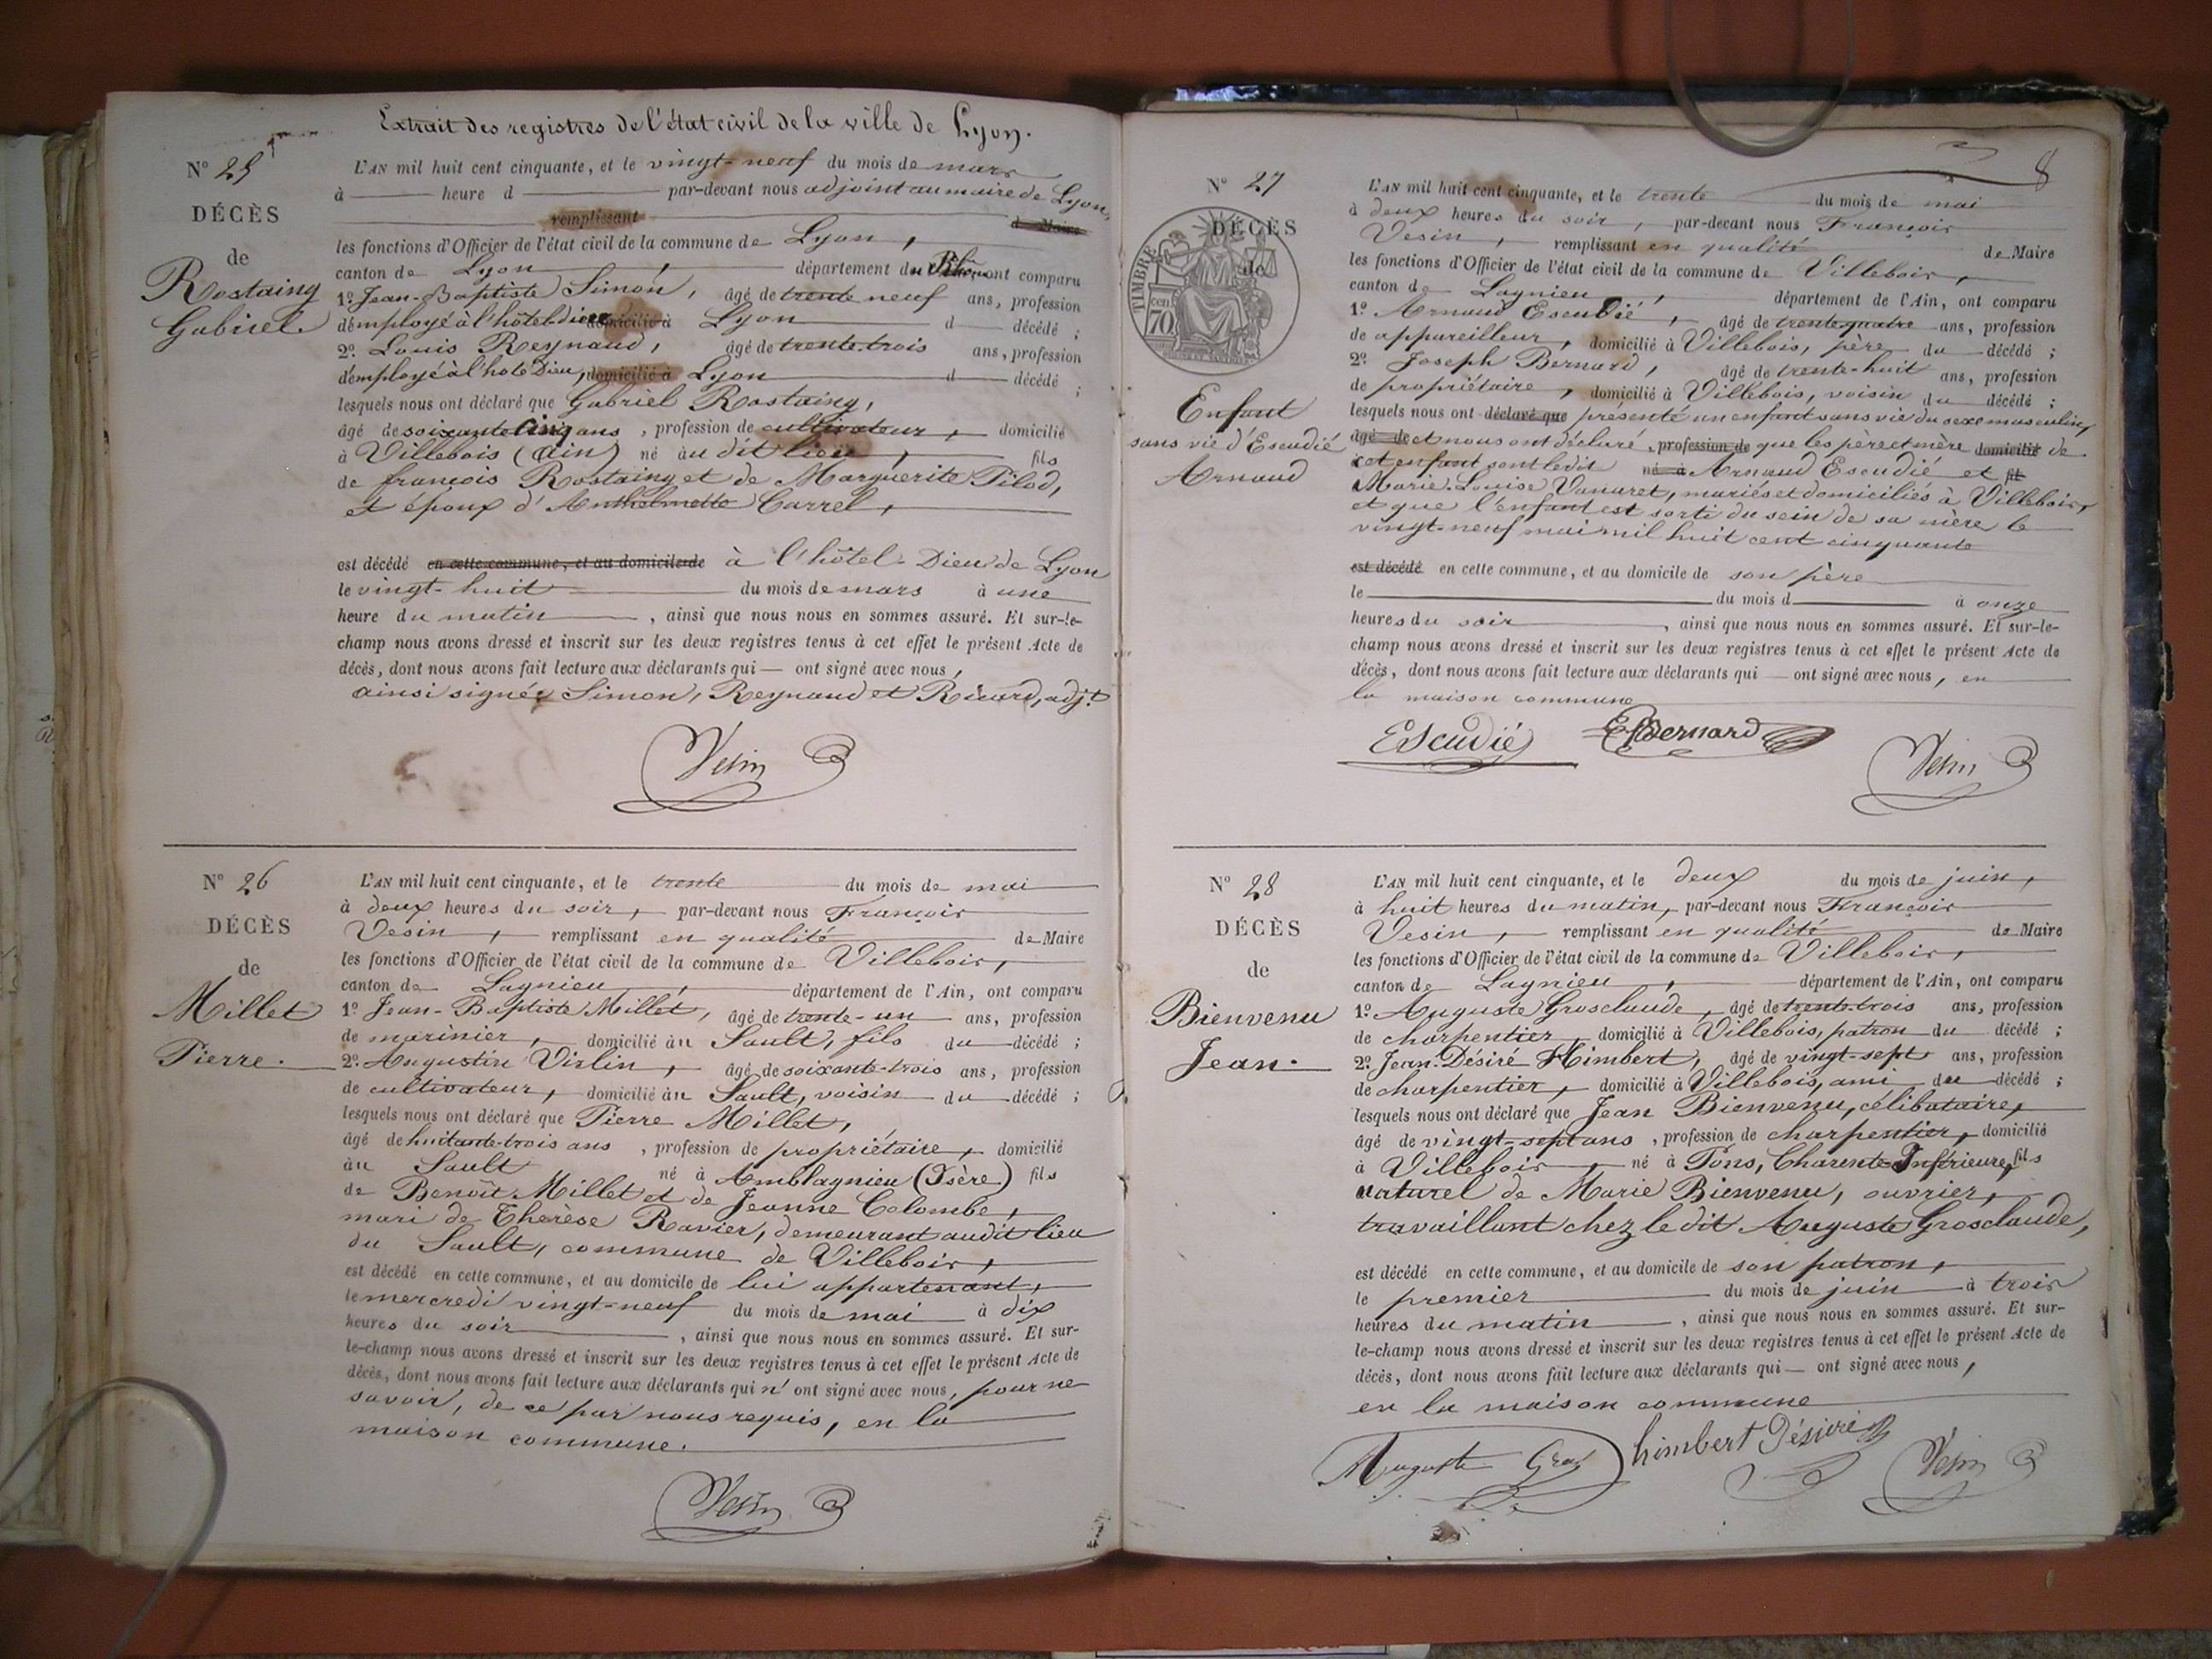 Extrait des registres de l'état civil de la ville de Lyon.
N° 25
DÉCÈS
de
Rostaing
Gabriel
L'AN mil huit cent cinquante, et le vingt-neuf du mois de mars
à heure d par-devant nous adjoint au maire de Lyon,
remplissant d Maire
les fonctions d'Officier de l'état civil de la commune de Lyon,
canton de Lyon, département du Rhône, ont comparu
1° Jean-Baptiste Simon, âgé de trente neuf ans, profession
d'employé à l'hôtel dieu domicilié à Lyon d décédé ;
2° Louis Reynaud, âgé de trente-trois ans, profession
d'employé à l'hotel Dieu, domicilié à Lyon d décédé ;
lesquels nous ont déclaré que Gabriel Rostaing,
âgé de soixante cinq ans, profession de cultivateur, domicilié
à Villebois (Ain) né au dit lieu, fils
de françois Rostaing et de Marguerite Pilod,
et époux d'Anthelmette Carrel,
est décédé en cette commune, et au domicile de à l'hôtel-Dieu de Lyon
le vingt-huit du mois de mars à une
heure du matin, ainsi que nous nous en sommes assuré. Et sur-le-
champ nous avons dressé et inscrit sur les deux registres tenus à cet effet le présent Acte de
décès, dont nous avons fait lecture aux déclarants qui ont signé avec nous,
ainsi signés Simon, Reynaud et Ricard, adjt
Vesin
N° 26
DÉCÈS
de
Millet
Pierre.
L'AN mil huit cent cinquante, et le trente du mois de mai
à deux heures du soir, par-devant nous François
Vesin, remplissant en qualité de Maire
les fonctions d'Officier de l'état civil de la commune de Villebois,
canton de Lagnieu, département de l'Ain, ont comparu
1° Jean-Baptiste Millet, âgé de trente-un ans, profession
de marinier, domicilié au Sault, fils du décédé ;
2° Augustin Virlin, âgé de soixante-trois ans, profession
de cultivateur, domicilié au Sault, voisin du décédé ;
lesquels nous ont déclaré que Pierre Millet,
âgé de huitante-trois ans, profession de propriétaire, domicilié
au Sault né à Amblagnieu (Isère) fils
de Benoît Millet et de Jeanne Colombe,
mari de Thérèse Ravier, demeurant audit lieu
du Sault, commune de Villebois,
est décédé en cette commune, et au domicile de lui appartenant,
le mercredi vingt-neuf du mois de mai à dix
heures du soir, ainsi que nous nous en sommes assuré. Et sur-
le-champ nous avons dressé et inscrit sur les deux registres tenus à cet effet le présent Acte de
décès, dont nous avons fait lecture aux déclarants qui n'ont signé avec nous, pour ne
savoir, de ce par nous requis, en la
maison commune.
Vesin
8
N° 27
DÉCÈS
de
TIMBRE
70
Enfant
sans vie d'Escudié
Arnaud
L'AN mil huit cent cinquante, et le trente du mois de mai
à deux heures du soir, par-devant nous François
Vesin, remplissant en qualité de Maire
les fonctions d'Officier de l'état civil de la commune de Villebois,
canton de Lagnieu, département de l'Ain, ont comparu
1° Arnaud Escudié, âgé de trente-quatre ans, profession
de appareilleur, domicilié à Villebois, père du décédé ;
2° Joseph Bernard, âgé de trente-huit ans, profession
de propriétaire, domicilié à Villebois, voisin du décédé ;
lesquels nous ont déclaré que présenté un enfant sans vie du sexe masculin,
âgé de et nous ont déclaré, profession de que les père et mère domicilié de
cet enfant sont le dit né à Arnaud Escudié et fil
Marie-Louise Vanaret, mariés et domiciliés à Villebois,
et que l'enfant est sorti du sein de sa mère le
vingt-neuf mai mil huit cent cinquante
est décédé en cette commune, et au domicile de son père
le du mois d à onze
heures du soir, ainsi que nous nous en sommes assuré. Et sur-le-
champ nous avons dressé et inscrit sur les deux registres tenus à cet effet le présent Acte de
décès, dont nous avons fait lecture aux déclarants qui ont signé avec nous, en
la maison commune
Escudié Bernard
Vesin
N° 28
DÉCÈS
de
Bienvenu
Jean.
L'AN mil huit cent cinquante, et le deux du mois de juin,
à huit heures du matin, par-devant nous François
Vesin, remplissant en qualité de Maire
les fonctions d'Officier de l'état civil de la commune de Villebois,
canton de Lagnieu, département de l'Ain, ont comparu
1° Auguste Grosclaude, âgé de trente-trois ans, profession
de charpentier, domicilié à Villebois, patron du décédé ;
2° Jean-Désiré Himbert, âgé de vingt-sept ans, profession
de charpentier, domicilié à Villebois, ami du décédé ;
lesquels nous ont déclaré que Jean Bienvenu, célibataire,
âgé de vingt-sept ans, profession de charpentier, domicilié
à Villebois, né à Pons, Charente Inférieure, fils
naturel de Marie Bienvenu, ouvrier,
travaillant chez le dit Auguste Grosclaude,
est décédé en cette commune, et au domicile de son patron,
le premier du mois de juin à trois
heures du matin, ainsi que nous nous en sommes assuré. Et sur-
le-champ nous avons dressé et inscrit sur les deux registres tenus à cet effet le présent Acte de
décès, dont nous avons fait lecture aux déclarants qui ont signé avec nous,
en la maison commune
Auguste Gros himbert Désiré Vesin